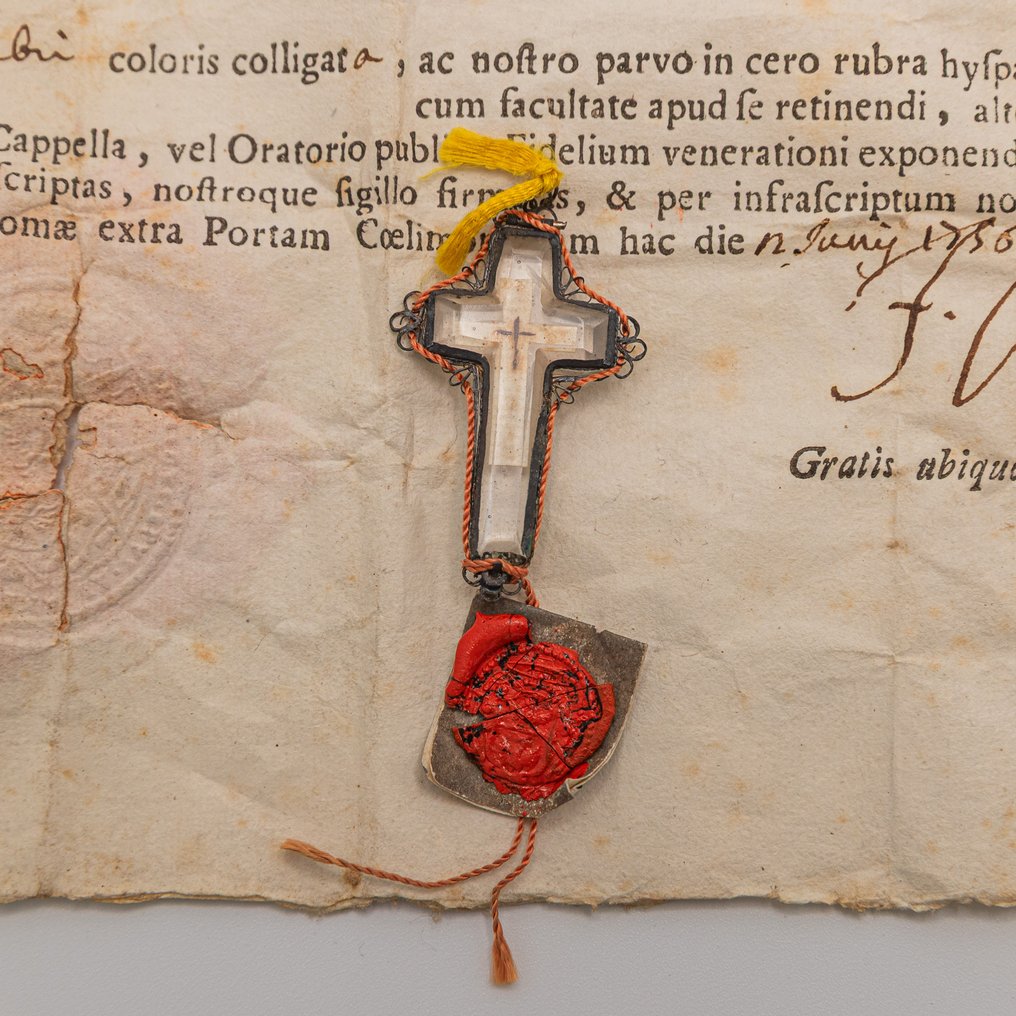 coloris colligata, ac noſtro parvo in cero rubra hyſpa
cum facultate apud ſe retinendi, alt
Cappella, vel Oratorio publi Fidelium venerationi exponend
ſcriptas, noſtroque ſigillo firmatas, & per infraſcriptum no
omæ extra Portam Cœlim m hac die 12 Junij 1756
F.
Gratis ubique